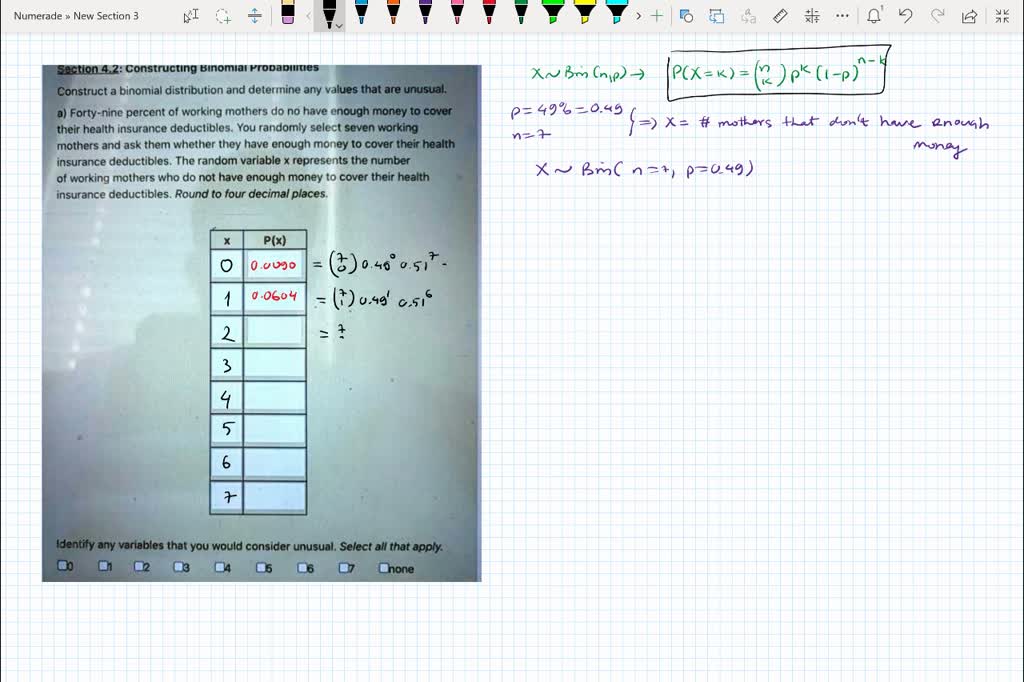 Numerade » New Section 3
Section 4.2: Constructing Binomial Probabilities
Construct a binomial distribution and determine any values that are unusual.
a) Forty-nine percent of working mothers do no have enough money to cover
their health insurance deductibles. You randomly select seven working
mothers and ask them whether they have enough money to cover their health
insurance deductibles. The random variable x represents the number
of working mothers who do not have enough money to cover their health
insurance deductibles. Round to four decimal places.
x P(x)
0 0.0090 = (7 0) 0.49⁰ 0.51⁷ -
1 0.0604 = (7 1) 0.49¹ 0.51⁶
2 = 7
3
4
5
6
7
Identify any variables that you would consider unusual. Select all that apply.
0 1 2 3 4 5 6 7 none
X ~ Bin(n,p) → P(X=k) = (n k) pᵏ (1-p)ⁿ⁻ᵏ
p = 49% = 0.49
n = 7
} => X = # mothers that don't have enough
money
X ~ Bin( n=7, p=0.49)